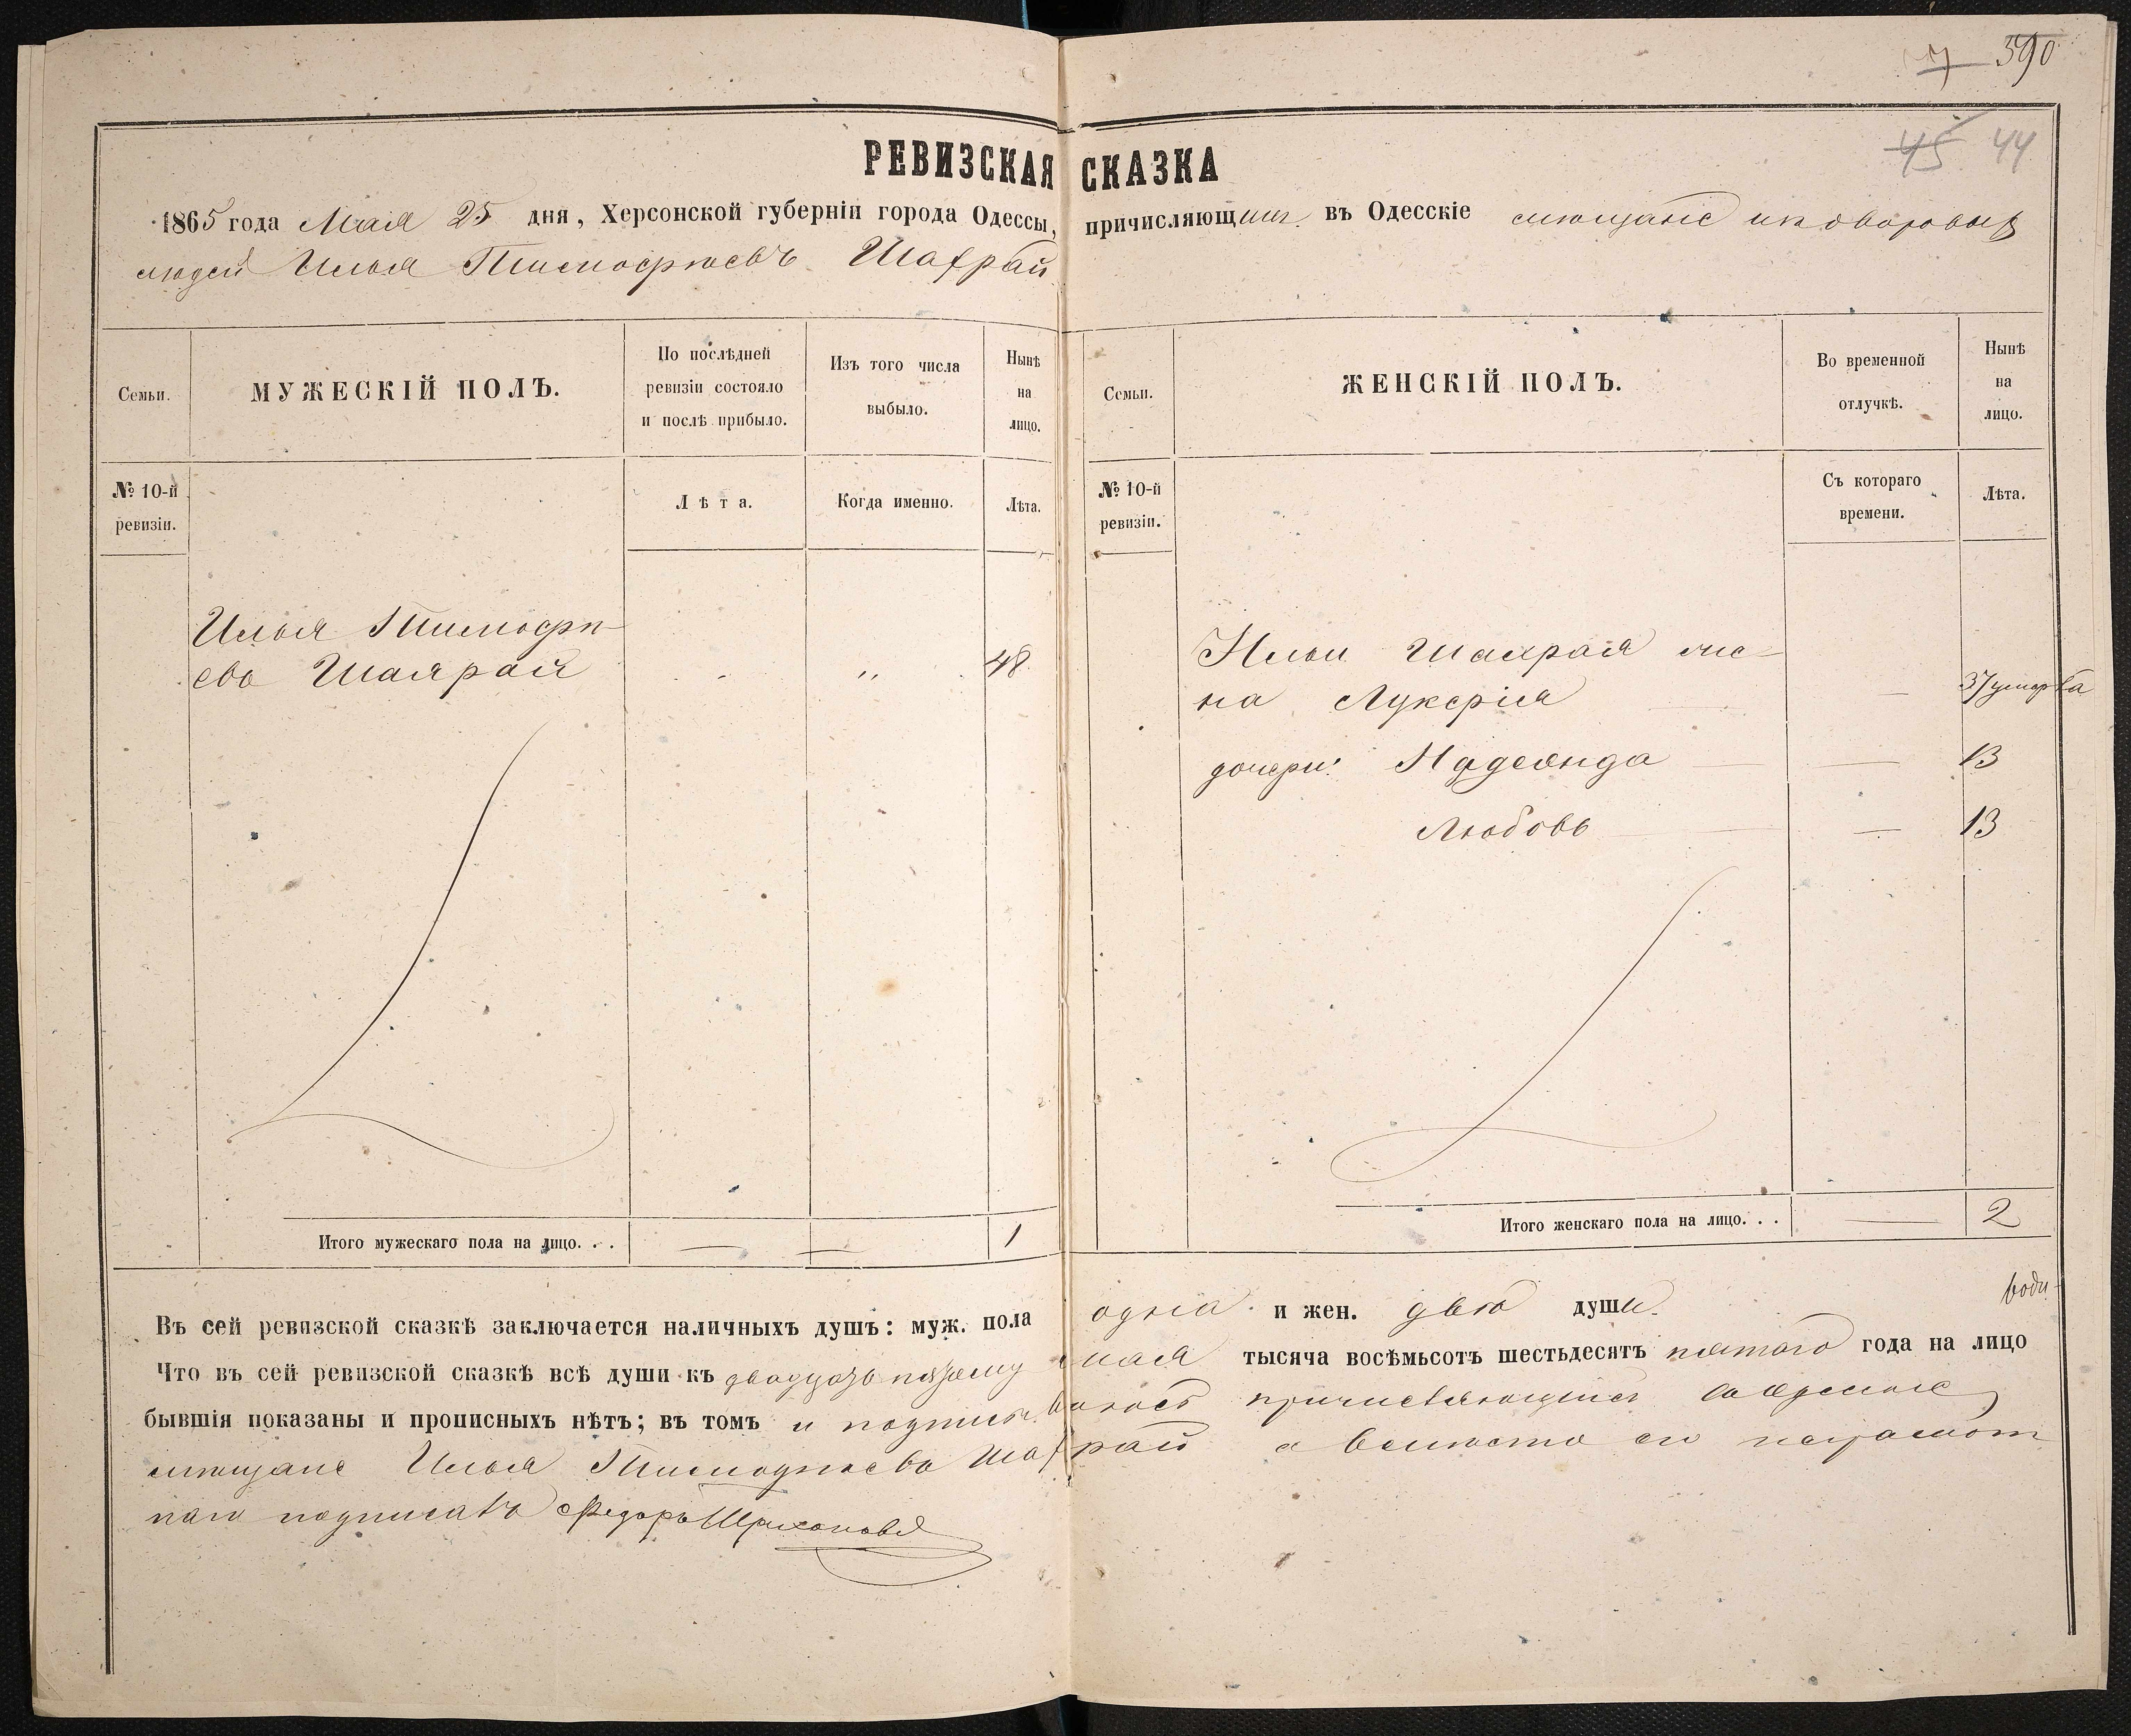 390
45 44
РЕВИЗСКАЯ СКАЗКА
1865 года Мая 25 дня, Херсонской губернiи города Одессы, причисляющийся въ Одесскiе мѣщане изъ дворовыхъ
людей Илья Тимофѣевъ Шахрай
Семьи.
МУЖЕСКIЙ ПОЛЪ.
По послѣдней
ревизiи состояло
и послѣ прибыло.
Изъ того числа
выбыло.
Нынѣ
на
лицо.
№ 10-й
ревизiи.
Лѣта.
Когда именно.
Лѣта.
Илья Тимофѣ-
евъ Шахрай - ,, 48
Итого мужескаго пола на лицо. . . — — 1
Семьи.
ЖЕНСКIЙ ПОЛЪ.
Во временной
отлучкѣ.
Нынѣ
на
лицо.
№ 10-й
ревизiи.
Съ котораго
времени.
Лѣта.
Ильи Шахрая же-
на Лукерiя — 37 умерла
дочери: Надежда — 13
Любовь — 13
Итого женскаго пола на лицо. . . — 2
Въ сей ревизской сказкѣ заключается наличныхъ душъ: муж. пола одна и жен. двѣ души.
Что въ сей ревизской сказкѣ всѣ души къ двадцать пятому мая тысяча восѣмьсотъ шестьдесятъ пятаго года на лицо
бывшiя показаны и прописныхъ нѣтъ; въ томъ и подписуюсь причисляющiйся въ Одесскiе
мѣщане Илья Тимофѣевъ Шахрай а вмѣсто его неграмот
наго подписалъ Федоръ